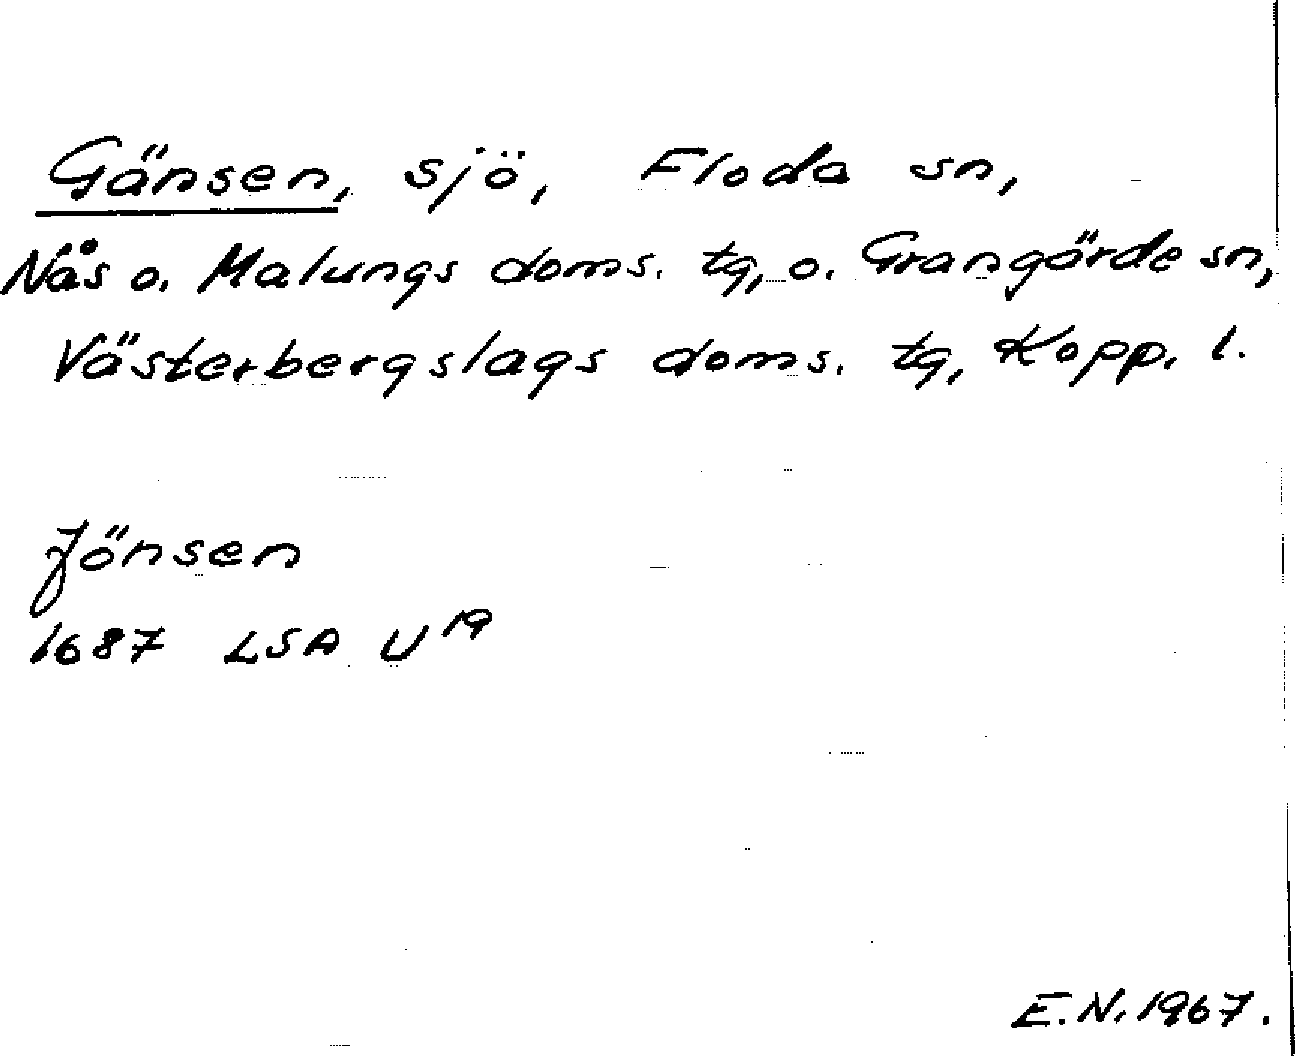 Gänsen, sjö, Floda sn,
Nås o. Malungs doms. tg, o. Grangärde sn,
Västerbergslags doms. tg, Kopp. l.
Jönsen
1687 LSA U19
E.N. 1967.